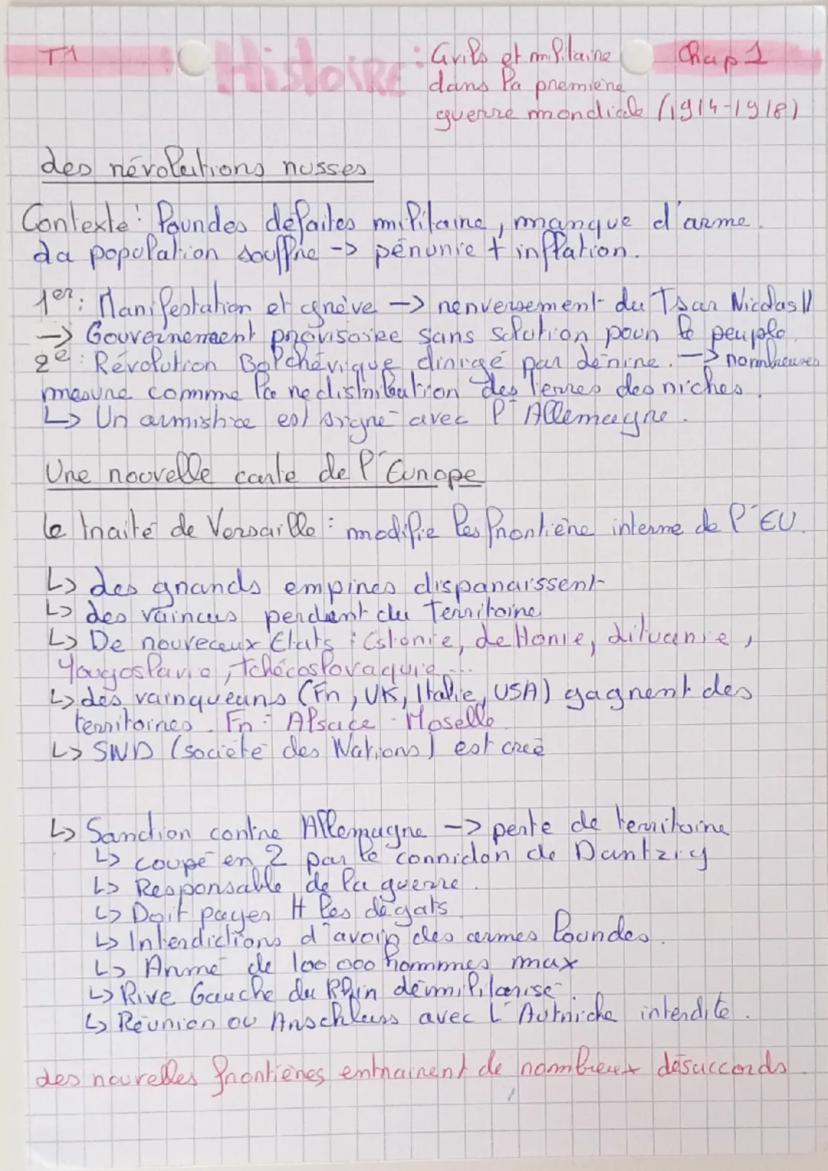 T1 Histoire : Civils et militaire Chap 1
dans la première
guerre mondiale (1914-1918)
Les révolutions russes
Contexte : lourdes défaites militaire, manque d'arme.
La population souffre -> pénurie + inflation.
1er : Manifestation et grève -> renversement du Tsar Nicolas II
-> Gouvernement provisoire sans solution pour le peuple.
2e : Révolution Bolchévique dirigé par Lénine. -> nombreuses
mesure comme la redistribution des terres des riches.
↳ Un armistice est signé avec l'Allemagne.
Une nouvelle carte de l'Europe
Le traité de Versaille : modifie les frontière interne de l'EU
↳ des grands empires disparaissent
↳ des vaincus perdent du territoire
↳ De nouveaux Etats : Estonie, Lettonie, Lituanie,
Yougoslavie, tchécoslovaquie...
↳ des vainqueurs (Fr, UK, Italie, USA) gagnent des
territoires. Fr : Alsace - Moselle
↳ SND (société des Nations) est créé
↳ Sanction contre Allemagne -> perte de territoire
↳ coupé en 2 par le corridor de Dantzig
↳ Responsable de la guerre.
↳ Doit payer tt les dégats
↳ Interdictions d'avoir des armes lourdes.
↳ Armé de 100 000 hommes max
↳ Rive Gauche du Rhin démilitarisé.
↳ Réunion ou Anschluss avec L'Autriche interdite.
des nouvelles frontières entrainent de nombreux désaccords